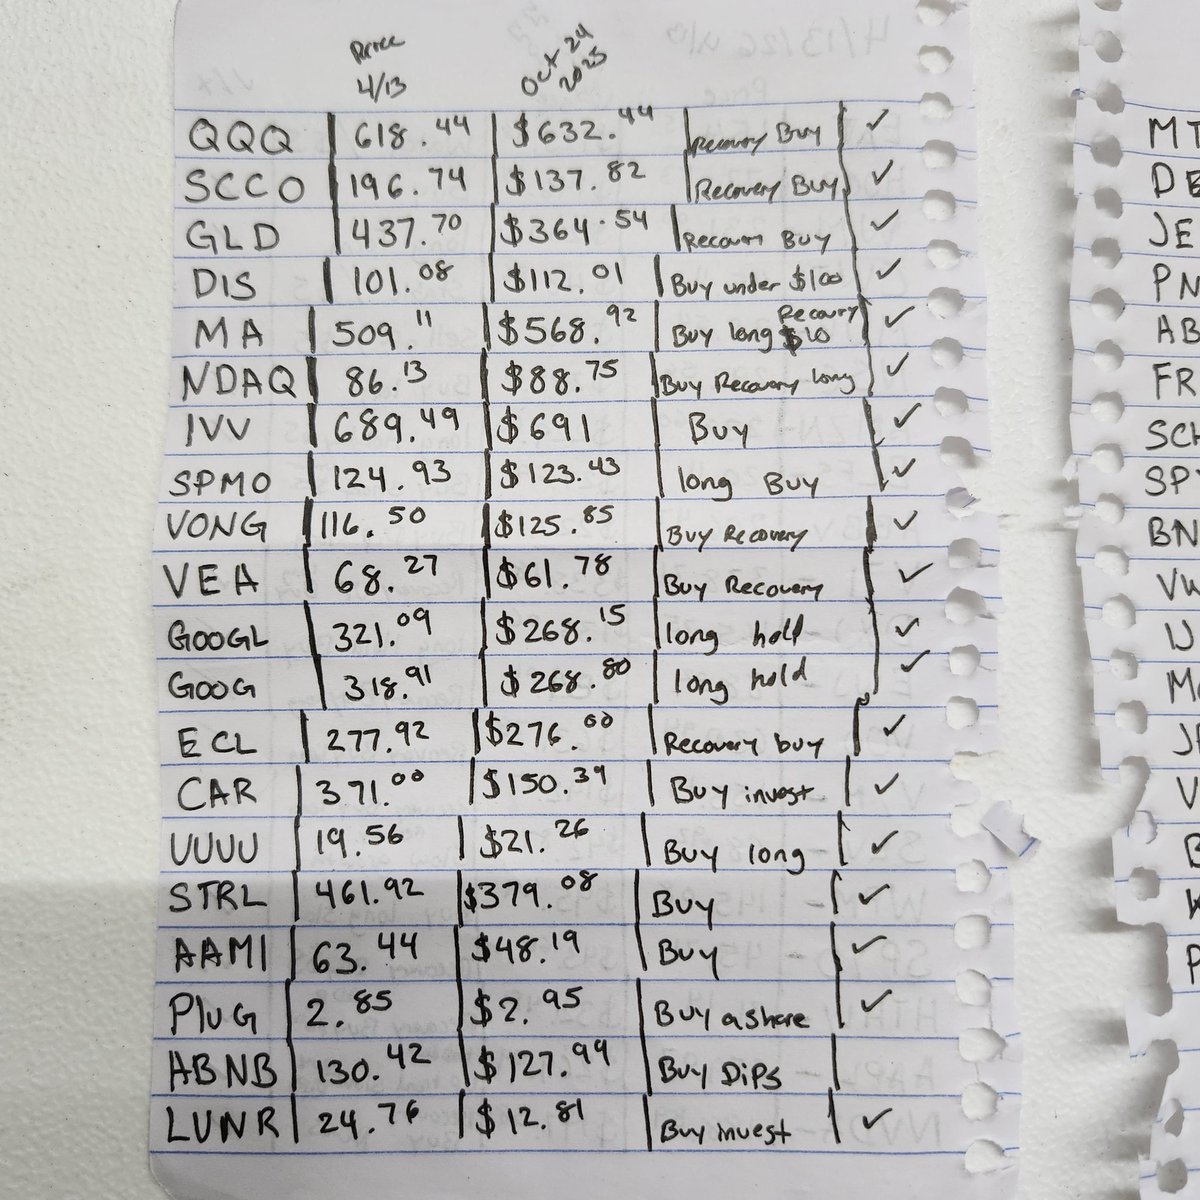 Price 4/13 Oct 24 2025
QQQ 618.44 $632.44 Recovery Buy ✓
SCCO 196.74 $137.82 Recovery Buy ✓
GLD 437.70 $364.54 Recovery Buy ✓
DIS 101.08 $112.01 Buy under $100 ✓
MA 509.11 $568.92 Buy long Recovry $10 ✓
NDAQ 86.13 $88.75 Buy Recovery long ✓
IVV 689.49 $691 Buy ✓
SPMO 124.93 $123.43 long Buy ✓
VONG 116.50 $125.85 Buy Recovery ✓
VEA 68.27 $61.78 Buy Recovery ✓
GOOGL 321.09 $268.15 long hold ✓
GOOG 318.91 $268.80 long hold ✓
ECL 277.92 $276.00 Recovery buy ✓
CAR 371.00 $150.39 Buy invest ✓
UUUU 19.56 $21.26 Buy long ✓
STRL 461.92 $379.08 Buy ✓
AAMI 63.44 $48.19 Buy ✓
PlUG 2.85 $2.95 Buy a share ✓
ABNB 130.42 $127.99 Buy DiPs
LUNR 24.76 $12.81 Buy invest ✓
MT
DE
JE
PN
AB
FR
SCH
SP
BN